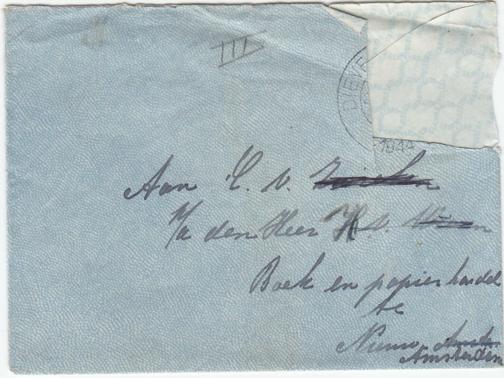 III
DIEVE
1944
Aan C. v.
p/a den Heer H. v.
Boek en papierhandel
te
Nieuw
Amsterdam